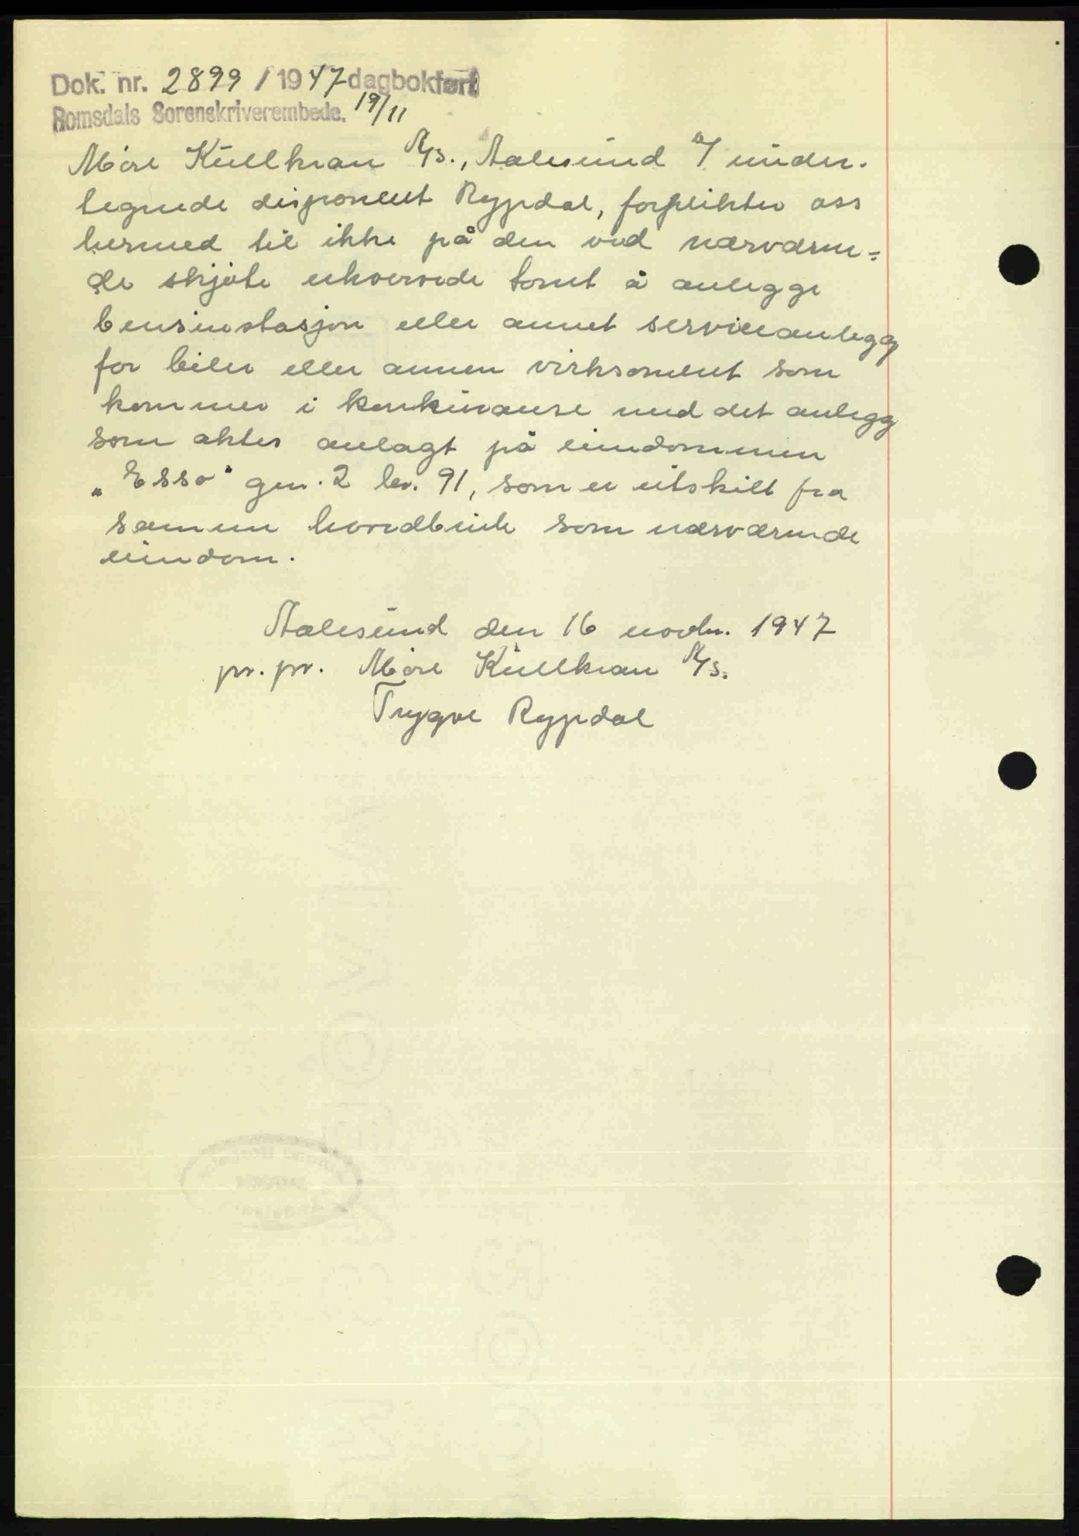 Dok. nr. 2899 / 1947 dagbokført
Romsdals Sorenskriverembede. 19/11
Møre Kullkran A/S., Aalesund v/ under-
tegnede disponent Rypdal, forplikter oss
hermed til ikke på den ved nærværen=
de skjøte erhvervede tomt å anlegge
bensinstasjon eller annet serviceanlegg
for biler eller annen virksomhet som
kommer i konkurranse med det anlegg
som aktes anlagt på eiendommen
"Esso" gnr. 2 br. 91, som er utskilt fra
samme hovedbruk som nærværende
eiendom.
Aalesund den 16 novbr. 1947
pr. pr. Møre Kullkran A/S.
Trygve Rypdal